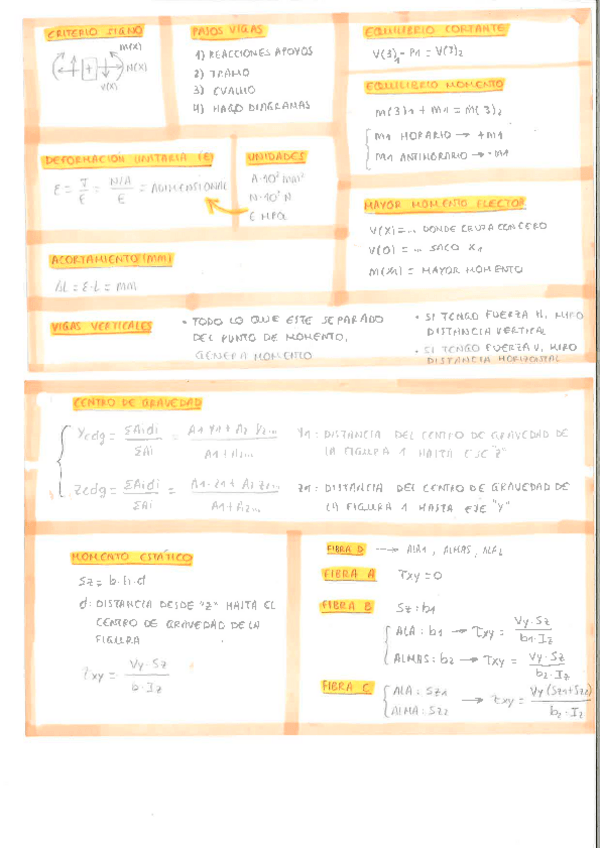 CRITERIO SIGNO
M(X)
N(X)
V(X)
PASOS VIGAS
1) REACCIONES APOYOS
2) TRAMO
3) EVALUO
4) HAGO DIAGRAMAS
EQUILIBRIO CORTANTE
V(3)₁ - P1 = V(3)₂
EQUILIBRIO MOMENTO
M(3)1 + M1 = M(3)₂
M1 HORARIO → +M1
M1 ANTIHORARIO → -M1
DEFORMACIÓN UNITARIA (ε)
= N/A / E = ADIMENSIONAL
UNIDADES
A·10² mm²
E MPa
MAYOR MOMENTO FLECTOR
V(X) = ... DONDE CRUZA CON CERO
V(0) = ... SACO X1
M(X1) = MAYOR MOMENTO
ACORTAMIENTO (MM)
ΔL = ε·L = MM
VIGAS VERTICALES
• TODO LO QUE ESTE SEPARADO
DEL PUNTO DE MOMENTO,
GENERA MOMENTO
• SI TENGO FUERZA H, MIRO
DISTANCIA VERTICAL
• SI TENGO FUERZA V, MIRO
DISTANCIA HORIZONTAL
CENTRO DE GRAVEDAD
Ycdg = ΣAidi / ΣAi = A1 Y1 + A2 Y2... / A1 + A2...
Y1: DISTANCIA DEL CENTRO DE GRAVEDAD DE
LA FIGURA 1 HASTA EJE "Z"
Zcdg = ΣAidi / ΣAi = A1·Z1 + A2 Z2... / A1 + A2...
Z1: DISTANCIA DEL CENTRO DE GRAVEDAD DE
LA FIGURA 1 HASTA EJE "Y"
MOMENTO ESTÁTICO
Sz = b·h·d
d: DISTANCIA DESDE "Z" HASTA EL
CENTRO DE GRAVEDAD DE LA
FIGURA
τxy = Vy·Sz / b·Iz
FIBRA D ---→ ALA1, ALMAS, ALA2
FIBRA A τxy = 0
FIBRA B Sz: b1
ALA: b1 → τxy = Vy·Sz / b1·Iz
ALMAS: b2 → τxy = Vy·Sz / b2·Iz
FIBRA C
ALA: Sz1
ALMA: Sz2
→ τxy = Vy(Sz1+Sz2) / b2·Iz